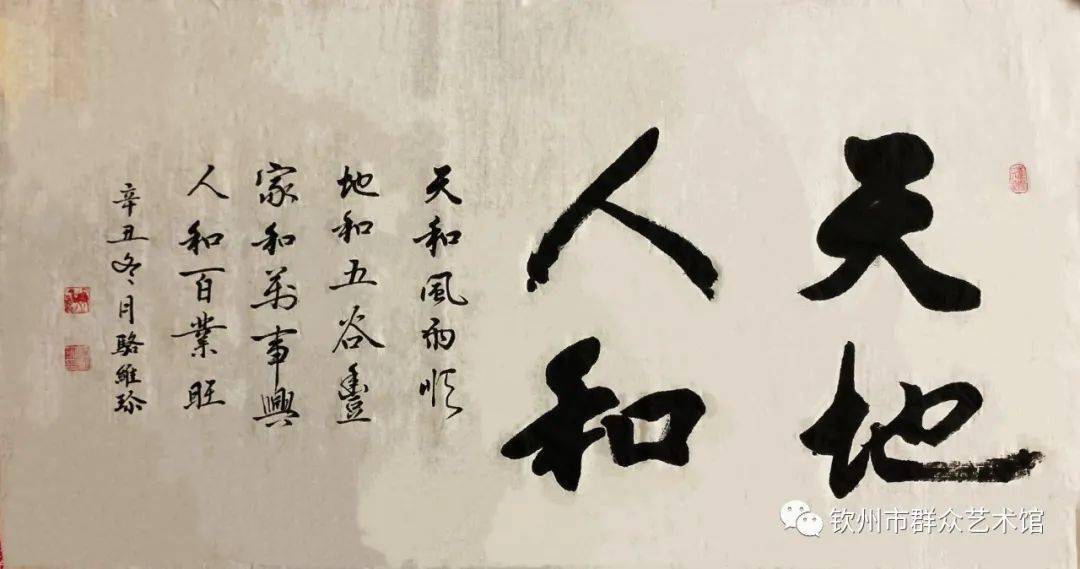 天地
人和
天和風雨順
地和五谷豐
家和萬事興
人和百業旺
辛丑冬月駱維珍
钦州市群众艺术馆